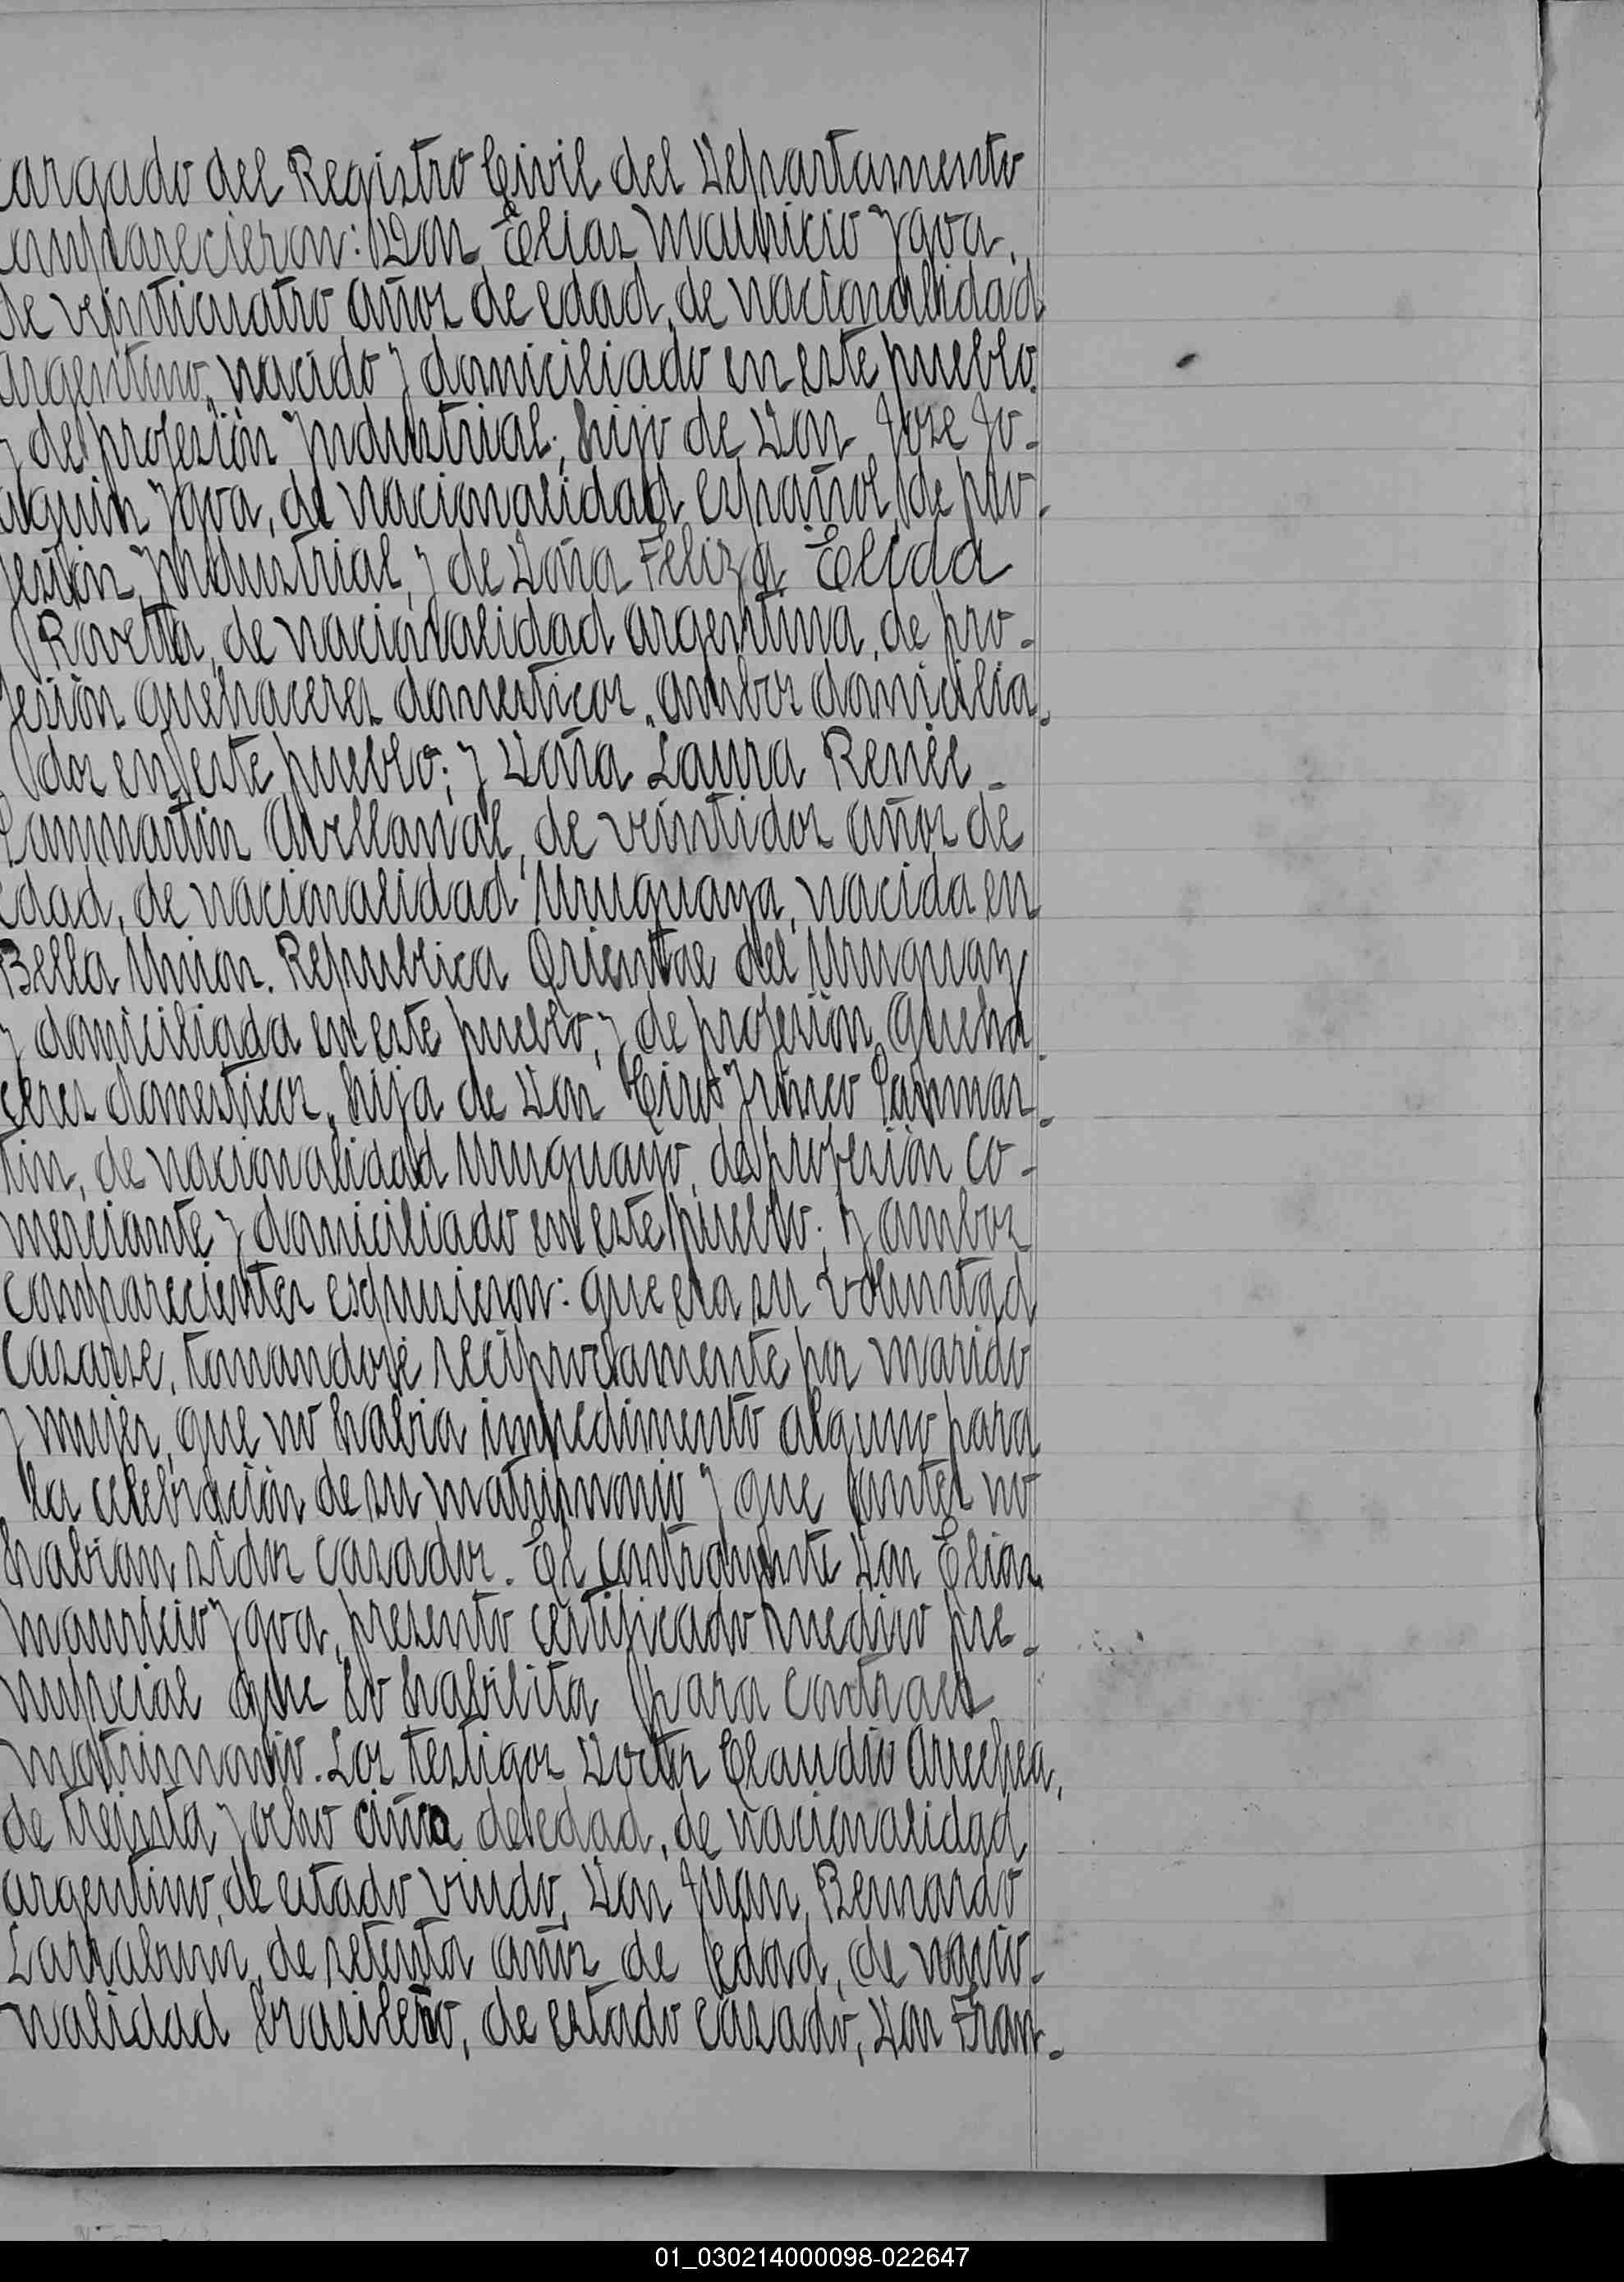 cargado del Registro Civil del Departamento
comparecieron: Don Elias Mauricio Ygoa,
de veinticuatro años de edad, de nacionalidad
argentino, nacido y domiciliado en este pueblo
y de profesión Industrial, hijo de Don José Jo-
aquin Ygoa, de nacionalidad español, de pro-
fesión Industrial, y de Doña Feliza Elida
Rovetta, de nacionalidad argentina, de pro-
fesión quehaceres domesticos, ambos domicilia-
dos en este pueblo; y Doña Laura Renée
Avellanal, de veintidos años de
edad, de nacionalidad Uruguaya, nacida en
Bella Unión. Republica Oriental del Uruguay
y domiciliada en este pueblo, y de profesión queha-
ceres domesticos, hija de Don Ciro
tin, de nacionalidad Uruguayo, de profesión co-
merciante y domiciliado en este pueblo; y ambos
comparecientes espusieron: que era su voluntad
casarse, tomandose reciprocamente por marido
y mujer, que no habia impedimento alguno para
la celebración de su matrimonio y que antes no
habian sidos casados. El contrayente Don Elias
Mauricio Ygoa, presento certificado medico pre-
nupcial que lo habilita para contraer
matrimonio. Los testigos Doctor Claudio Arrechea,
de treinta y ocho años de edad, de nacionalidad
argentino, de estado viudo, Don Juan Bernardo
de setenta años de edad, de nacio-
nalidad brasileño, de estado casado, Don Fran-
01_030214000098-022647